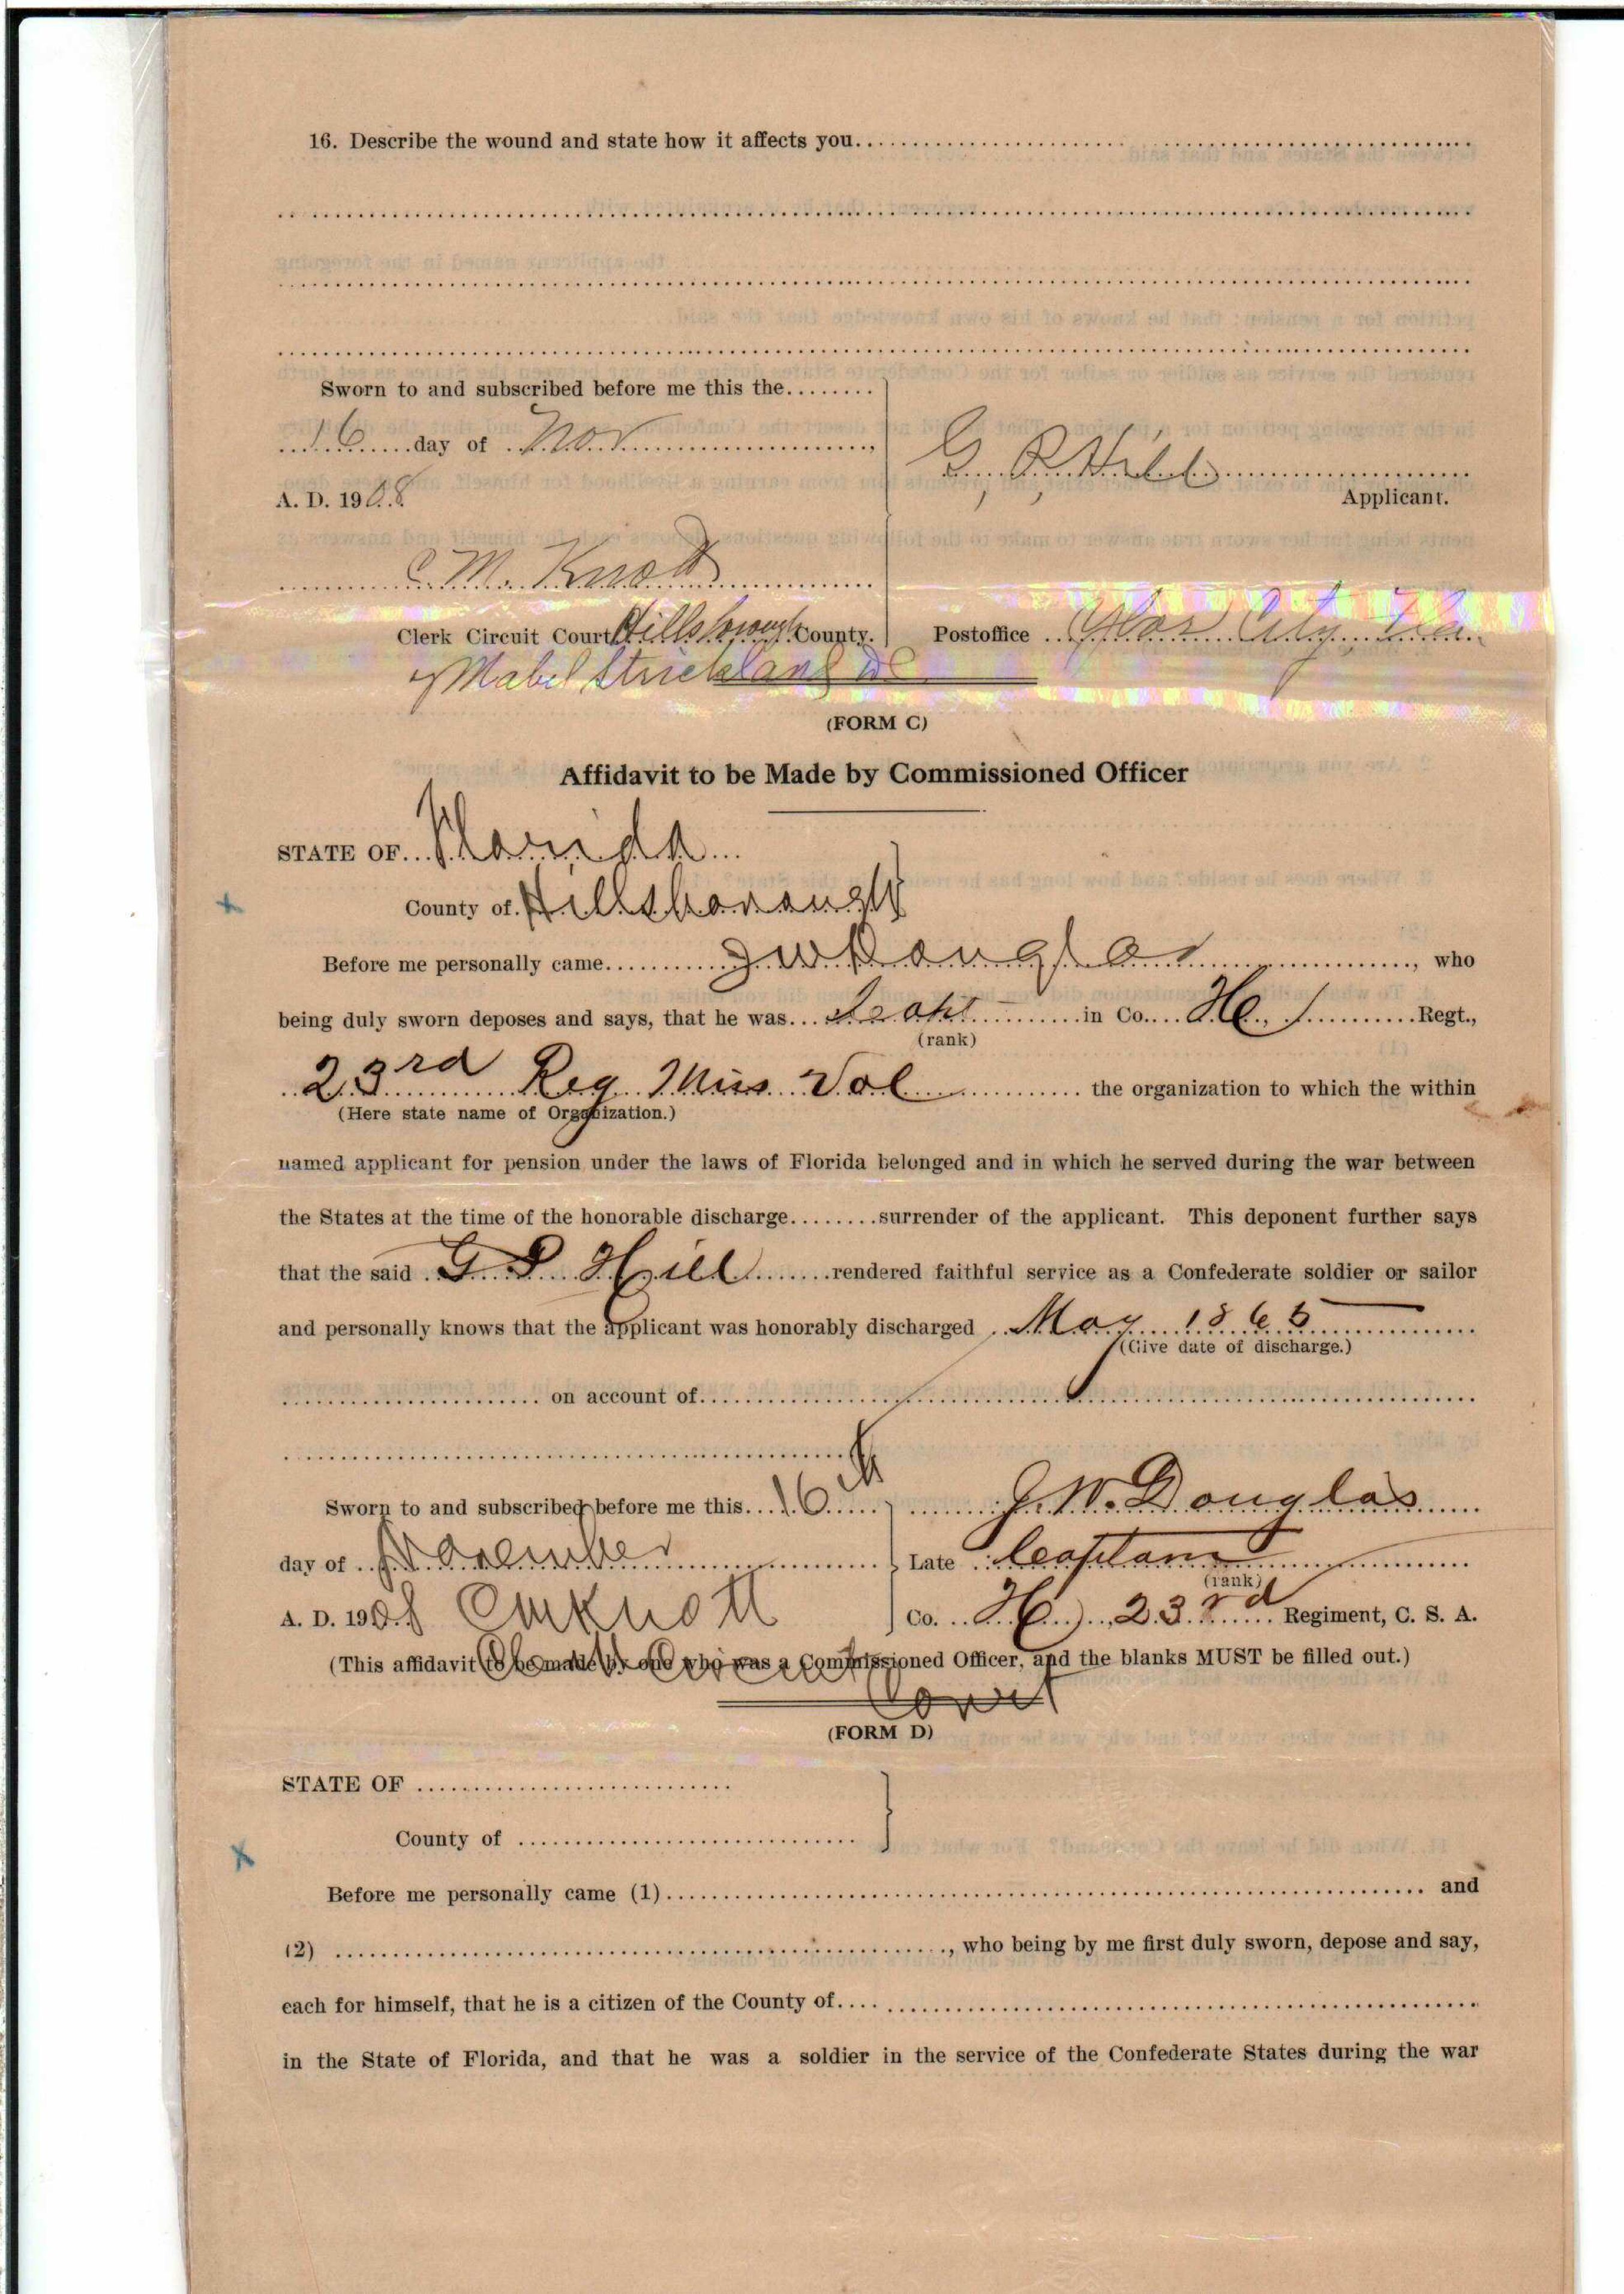 16. Describe the wound and state how it affects you
Sworn to and subscribed before me this the
16 day of Nov
A. D. 1908
G, P, Hill
Applicant.
C. M. Knott
Clerk Circuit Court Hillsborough County.
Postoffice Ybor City, Fla.
Mabel Strickland DC
(FORM C)
Affidavit to be Made by Commissioned Officer
STATE OF Florida
County of Hillsborough
Before me personally came J W Douglas, who
being duly sworn deposes and says, that he was in Co. H Regt.,
(rank)
23rd Reg Miss Vol the organization to which the within
(Here state name of Organization.)
named applicant for pension under the laws of Florida belonged and in which he served during the war between
the States at the time of the honorable discharge........surrender of the applicant. This deponent further says
that the said G P Hill rendered faithful service as a Confederate soldier or sailor
and personally knows that the applicant was honorably discharged May 1865
(Give date of discharge.)
on account of
Sworn to and subscribed before me this 16th
J. W. Douglas
day of November
Late Captain
(rank)
A. D. 1908 C M Knott
Co. H, 23rd Regiment, C. S. A.
(This affidavit to be made by one who was a Commissioned Officer, and the blanks MUST be filled out.)
Clerk Circuit
Court
(FORM D)
STATE OF
County of
Before me personally came (1) and
(2) , who being by me first duly sworn, depose and say,
each for himself, that he is a citizen of the County of
in the State of Florida, and that he was a soldier in the service of the Confederate States during the war